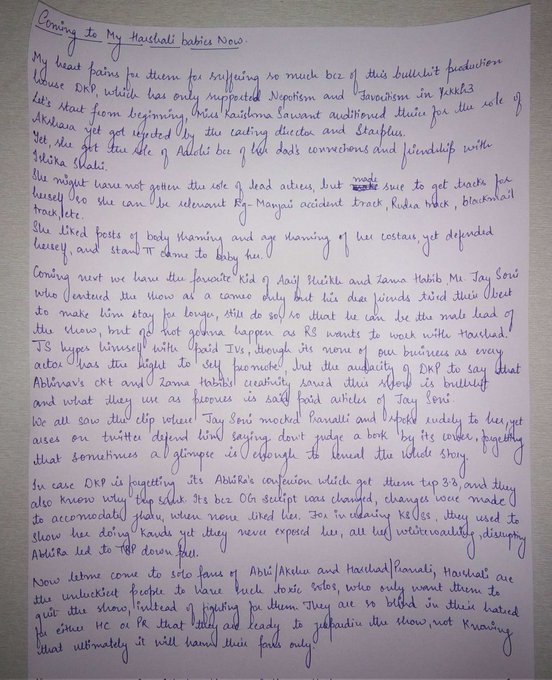 Coming to My Harshali babies Now.
My heart pains for them for suffering so much bcz of this bullshit production
house DKP, which has only supported Nepotism and Favouritism in Yrkkh3
Let's start from beginning Miss Karishma Sawant auditioned thrice for the role of
Akshara yet got rejected by the casting director and Starplus.
Yet, she got the role of Aarohi bcz of her dad's connections and friendship with
Ishika Shahi.
She might have not gotten the role of lead actress, but made sure to get tracks for
herself so she can be relevant Eg- Manjari accident track, Rudra track, blackmail
track, etc.
She liked posts of body shaming and age shaming of her costars, yet defended
herself, and stan π came to baby her.
Coming next we have the favorite kid of Aarif Sheikh and Zama Habib Mr. Jay Soni
who entered the show as a cameo only but his dear friends tried their best
to make him stay for longer, still do so, so that he can be the male lead of
the show, but ofc not gonna happen as RS wants to work with Harshad.
JS hypes himself with paid IVs, though its none of our business as every
actor has the right to self promote, but the audacity of DKP to say that
Abhinav's ckt and Zama Habib's creativity saved this show is bullshit
and what they use as prooves is said paid articles of Jay Soni.
We all saw the clip where Jay Soni mocked Pranalli and spoke rudely to her, yet
arses on twitter defend him saying don't judge a book by its cover, forgetting
that sometimes a glimpse is enough to reveal the whole story.
In case DKP is forgetting its AbhiRa's confession which got them trp 3.8, and they
also know why trp sunk. Its bcz OG script was changed, changes were made
to accomodate jhadu, when none liked her. For increasing KS SS, they used to
show her doing kands yet they never exposed her, all her whitewashing, disrupting
AbhiRa led to TRP down fall.
Now letme come to solo fans of Abhi/Akshu and Harshad/Pranali, Harshali are
the unluckiest people to have such toxic solos, who only want them to
quit the show, instead of fighting for them. They are so blind in their hatred
for either HC or PR that they are ready to jeopardise the show, not knowing
that ultimately it will harm their favs only.